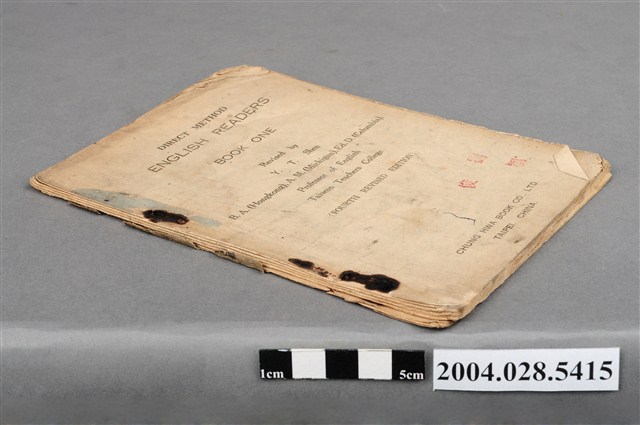 DIRECT METHOD
ENGLISH READERS
BOOK ONE
Revised by
Y. T. Shen
B. A. (Hongkong), A. M. (Michigan), Ed. D. (Columbia)
Professor of English
Taiwan Teachers College
(FOURTH REVISED EDITION)
CHUNG HWA BOOK CO., LTD.
TAIPEI, CHINA
1cm 5cm
2004.028.5415